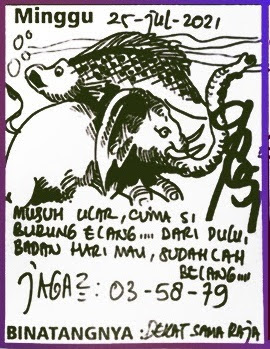 Minggu 25-jul-2021
MUSUH ULAR, CUMA SI
BURUNG ELANG.... DARI DULU,
BADAN HARIMAU, SUDAHLAH
BELANG....
JAGA2 : 03-58-79
BINATANGNYA : DEKAT SAMA RAJA